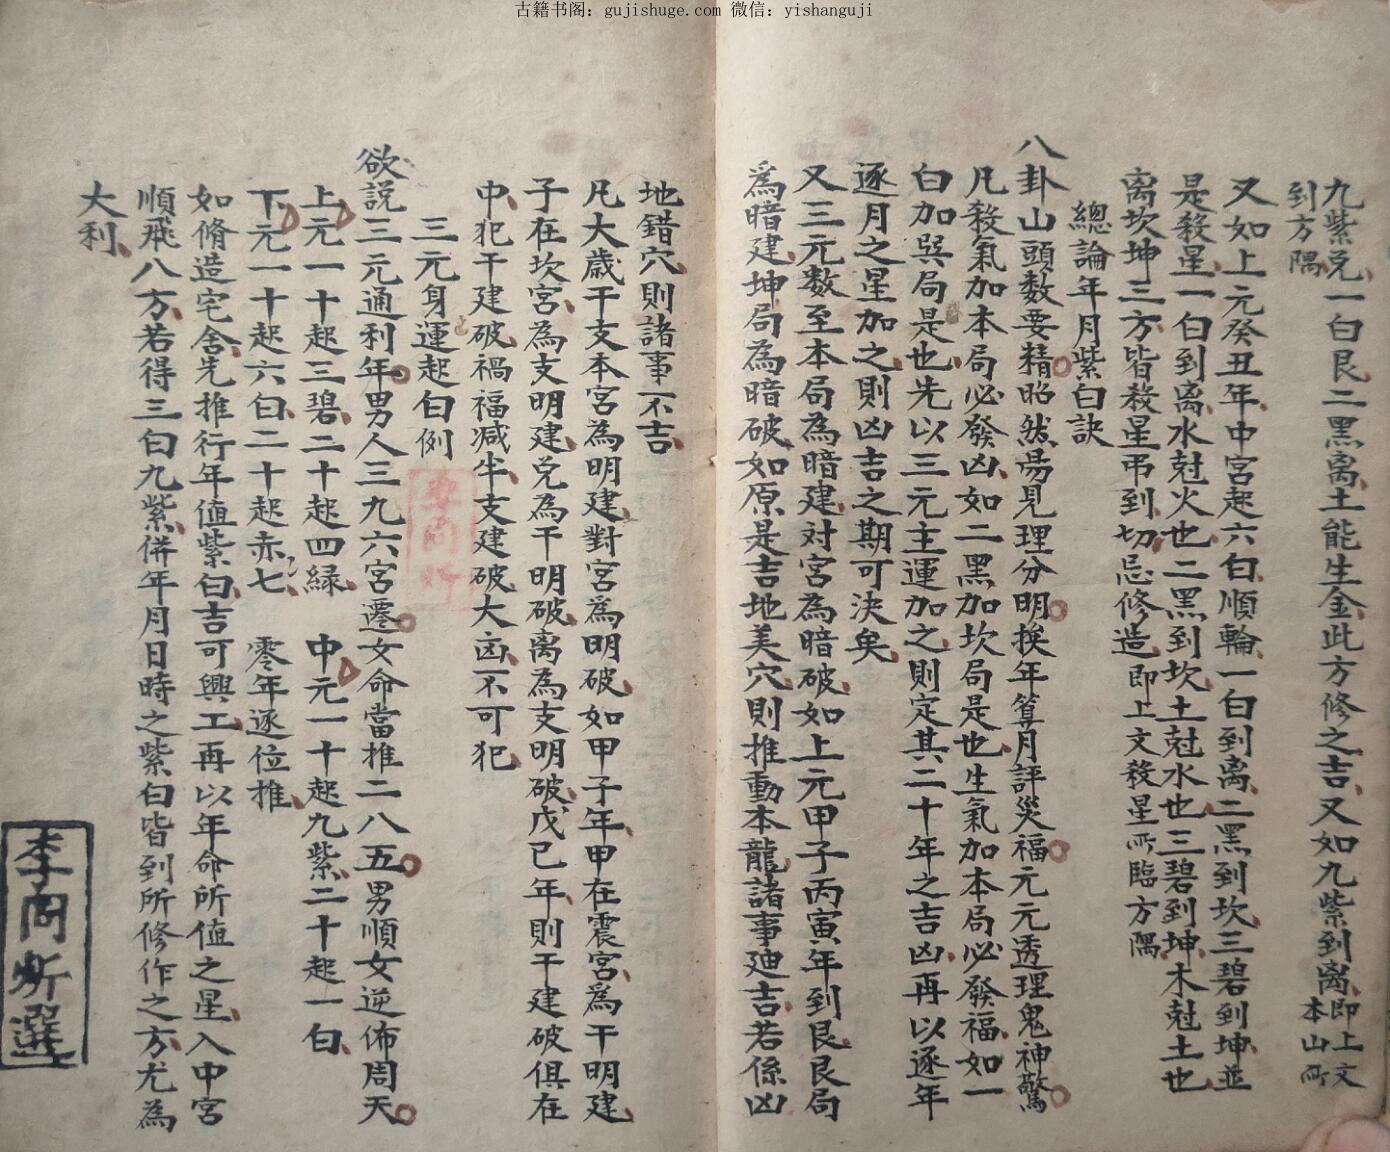 古籍书阁：gujishuge.com 微信：yishanguji
九紫兑一白艮二黑离土能生金此方修之吉又如九紫到离即上文本山所
到方隅
又如上元癸丑年中宫起六白順輪一白到离二黑到坎三碧到坤並
是殺星一白到离水尅火也二黑到坎土尅水也三碧到坤木尅土也
离坎坤三方皆殺星弔到切忌修造即上文殺星所臨方隅
總論年月紫白訣
八卦山頭数要精昭然易見理分明換年算月評災福元元透理鬼神驚
凡殺氣加本局必發凶如二黑加坎局是也生氣加本局必發福如一
白加巽局是也先以三元主運加之則定其二十年之吉凶再以逐年
逐月之星加之則凶吉之期可決矣
又三元数至本局為暗建対宮為暗破如上元甲子丙寅年到艮艮局
為暗建坤局為暗破如原是吉地美穴則推動本龍諸事廸吉若係凶
地錯穴則諸事不吉
凡大歳干支本宮為明建對宮為明破如甲子年甲在震宮為干明建
子在坎宮為支明建兑為干明破离為支明破戊己年則干建破俱在
中犯干建破禍福减半支建破大凶不可犯
三元身運起白例
欲説三元通利年男人三九六宮遷女命當推二八五男順女逆佈周天
上元一十起三碧二十起四緑 中元一十起九紫二十起一白
下元一十起六白二十起赤七 零年逐位推
如脩造宅舍先推行年值紫白吉可興工再以年命所值之星入中宮
順飛八方若得三白九紫併年月日時之紫白皆到所修作之方尤為
大利
李周所選